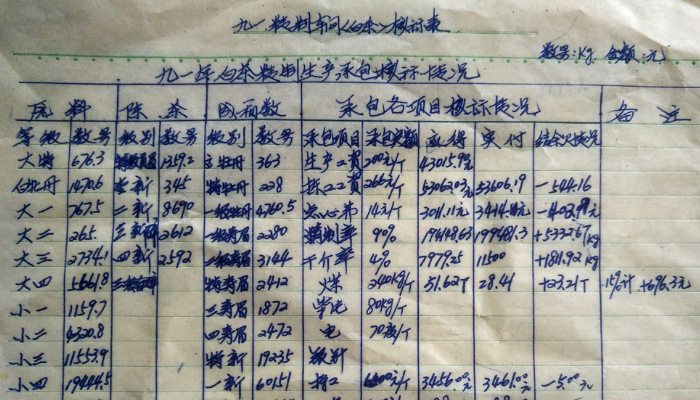 九一.精制车间(白茶)核标表
数量:Kg 金额:元
九一年白茶精制生产承包核标情况
原料 陈茶 成箱数 承包各项目核标情况 备注
等级 数量 级别 数量 级别 数量 承包项目 承包实额 应得 实付 结余欠情况
大特 676.3 1359.2 牡丹 363 生产工资 200元/T 43015.9元
白牡丹 1470.6 345 特牡丹 228 拣工工资 266元/T 53062.03元 53606.19 -544.16
大一 767.5 二新 8690 一级牡丹 4760.5 点心券 14元/T 3011.11元
大二 265. 2612 一级寿眉 2280 精制率 90% 199481.3 +5332.67kg
大三 2734.1 四新 2592 二级寿眉 3144 干仔率 4% 7979.25 11500
大四 5661.8 特寿眉 2412 煤 240kg/T 51.62T 28.41 +23.21T 15%计 +696.3元
小一 1159.7 三寿眉 1872 柴 80kg/T
小二 4320.8 四寿眉 2472 电 70度/T
小三 11553.9 特新 1923.5
小四 19444.5 一新 60151 3456.00元 3461.00元 -5.00元